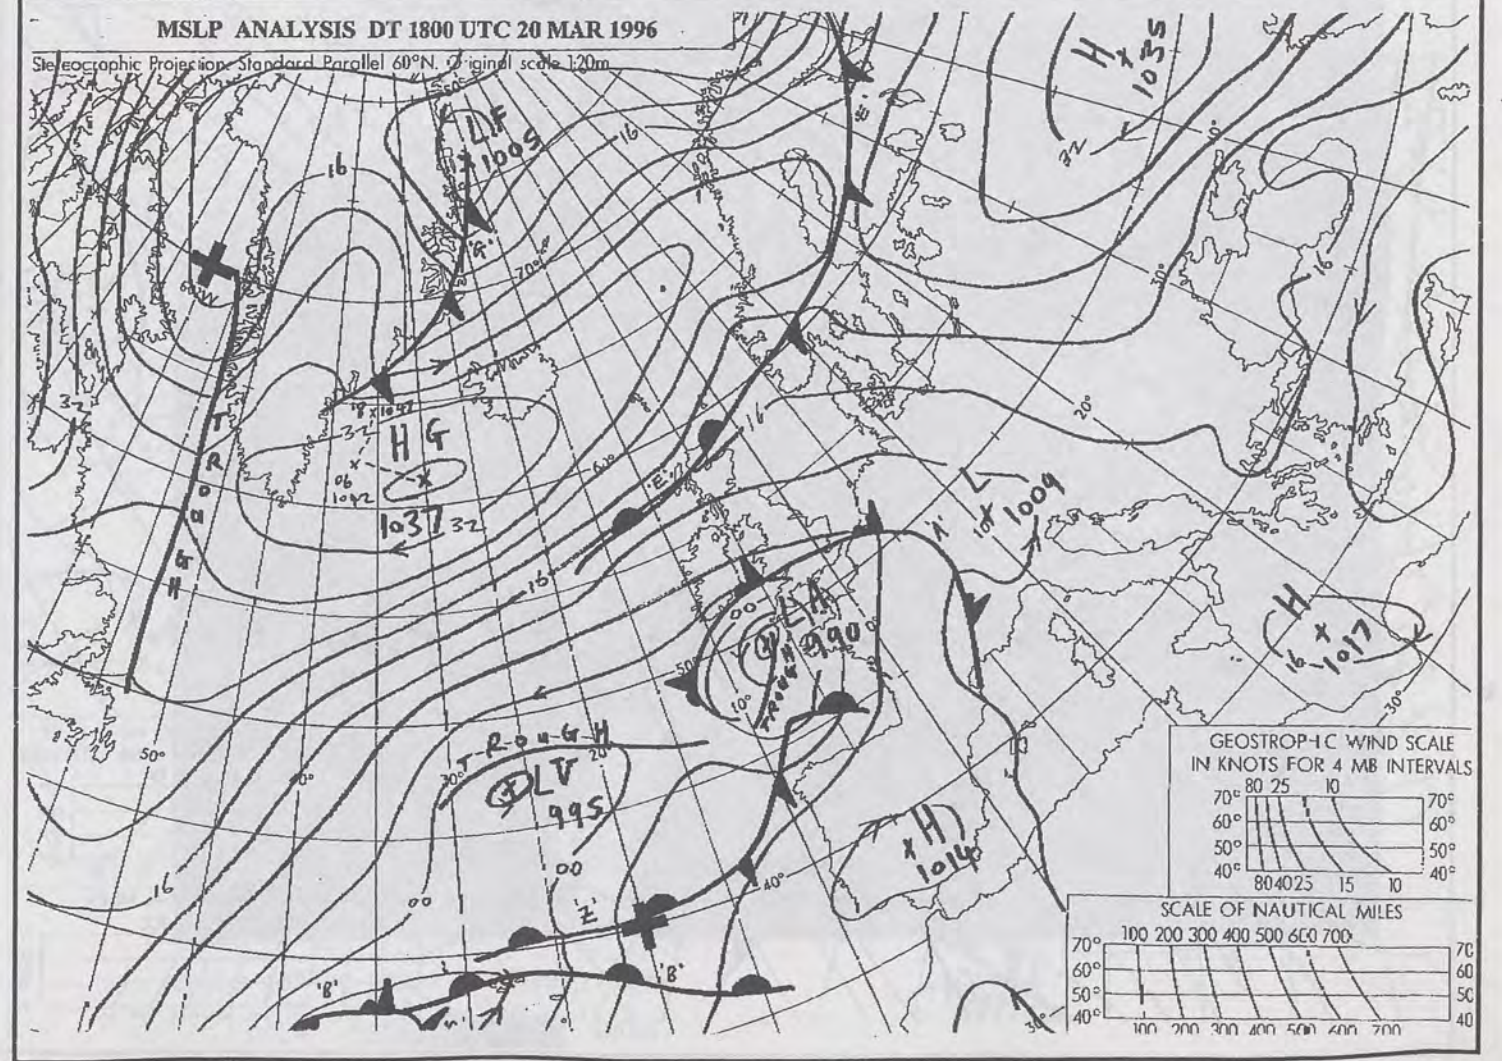 MSLP ANALYSIS DT 1800 UTC 20 MAR 1996
Stereographic Projection. Standard Parallel 60°N. Original scale 1:20m
H
1035
32
LF
1005
16
16
'G'
70°
60°W
TROUGH
32
H G
1037
32
32
06
1042
60°
'E'
16
16
16
L
1009
H
1017
16
30°
20°
30°
'A'
LA
990
00
50°
10°
TROUGH
TROUGH
LV
995
20°
30°
50°
16
00
00
'Z'
'B'
'B'
40°
H
1014
30°
GEOSTROPHIC WIND SCALE
IN KNOTS FOR 4 MB INTERVALS
80 25 10
70° 70°
60° 60°
50° 50°
40° 40°
80 40 25 15 10
SCALE OF NAUTICAL MILES
100 200 300 400 500 600 700
70° 70
60° 60
50° 50
40° 40
100 200 300 400 500 600 700